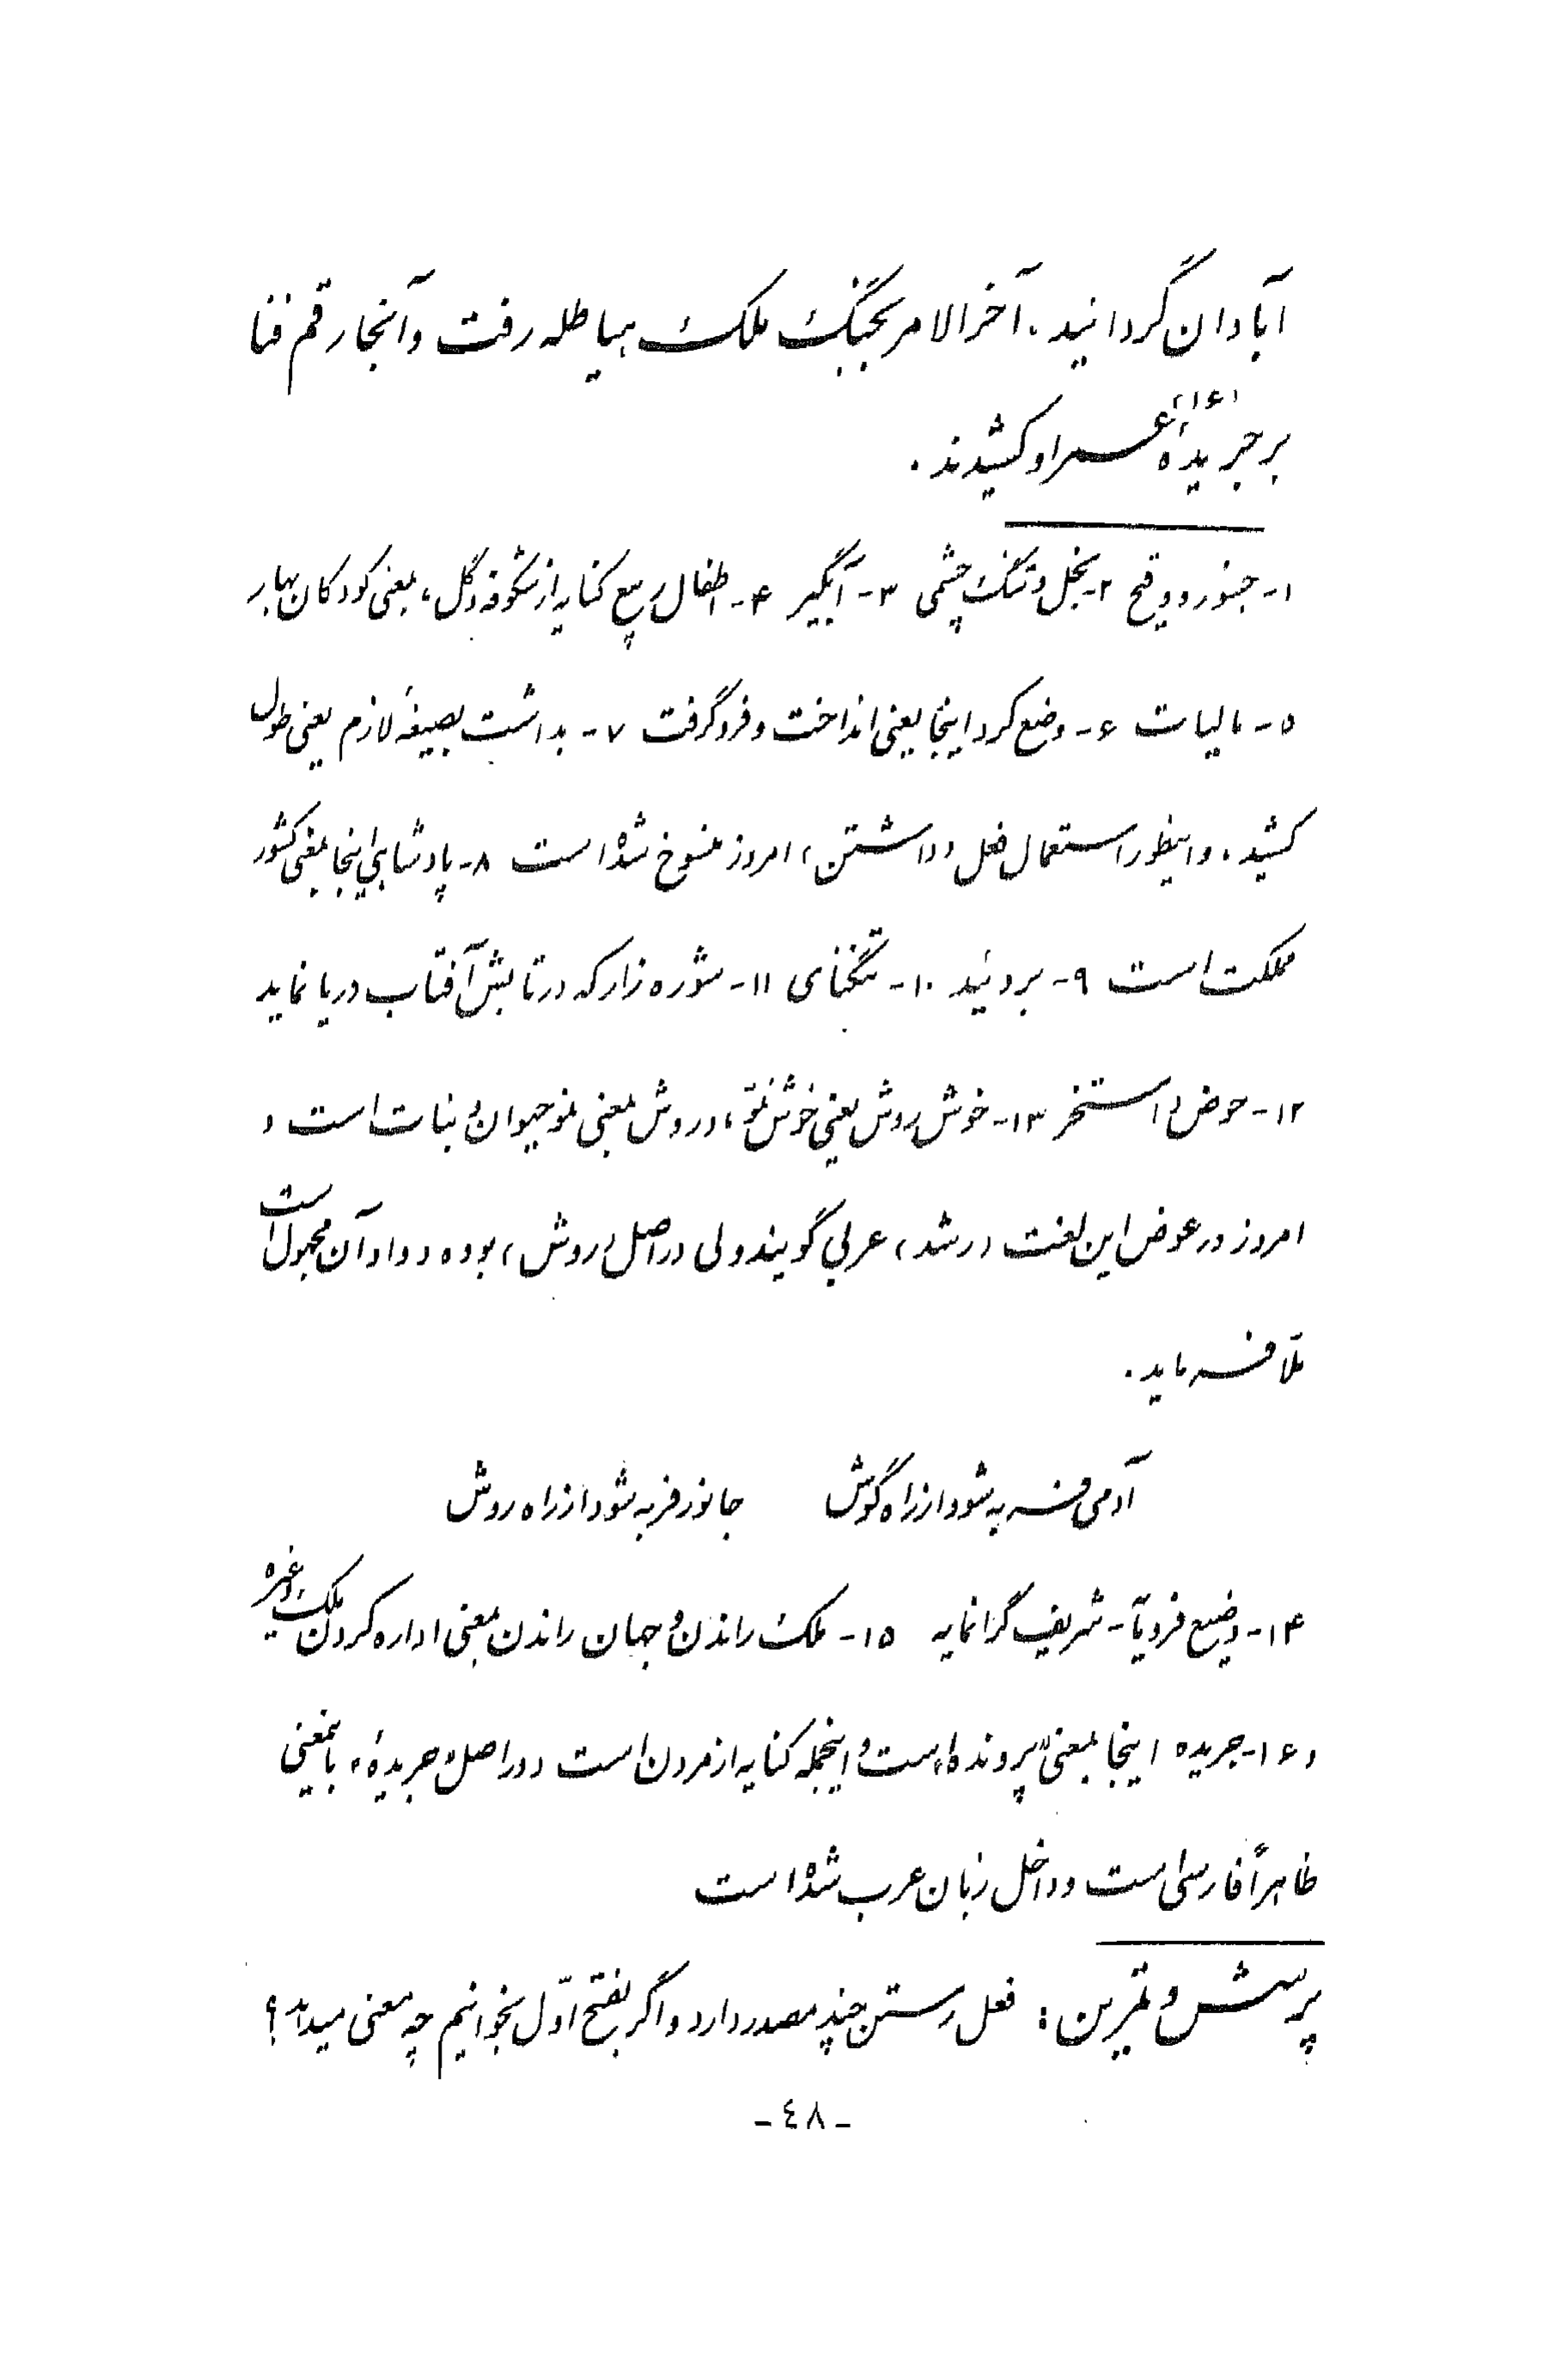 آبادان گردانید. آخرالامر بجنگ ملک هیاطله رفت و آنجا رقم فنا
بر جریدهٔ (۱۶) عمر او کشیدند.
۱- جسور و وقیح ۲- بخل و تنگ چشمی ۳- آبگیر ۴- اطفال ربیع کنایه از شکوفه و گل، بمعنی کودکان بهار
۵- مالیات ۶- وضع کرد اینجا یعنی انداخت و فروگرفت ۷- بداشت بصیغهٔ لازم یعنی طول
کشید. و اینطور استعمال فعل (داشتن) امروز منسوخ شده است ۸- پادشاهی اینجا بمعنی کشور
مملکت است ۹- بردئید ۱۰- تنگنای ۱۱- شوره زار که در تابش آفتاب دریا نماید
۱۲- حوض و استخر ۱۳- خوش روش یعنی خوش نموّ، و روش بمعنی نمو حیوان و نبات است و
امروز در عوض این لغت (رشد) عربی گویند ولی در اصل (روش) بوده و واو آن مجهول است
ملا فرماید.
آدمی فربه شود از راه گوش جانور فربه شود از راه روش
۱۴- وضیع فرومایه - شریف گرانمایه ۱۵- ملک راندن و جهان راندن بمعنی اداره کردن ملک و غیره
۱۶- جریده اینجا بمعنی «پرونده» است و اینجمله کنایه از مردن است و در اصل «جریده» باینمعنی
ظاهراً فارسی است و داخل زبان عرب شده است
پرسش و تمرین: فعل رستن چند مصدر دارد و اگر بفتح اوّل بخوانیم چه معنی میدهد؟
-٤٨-